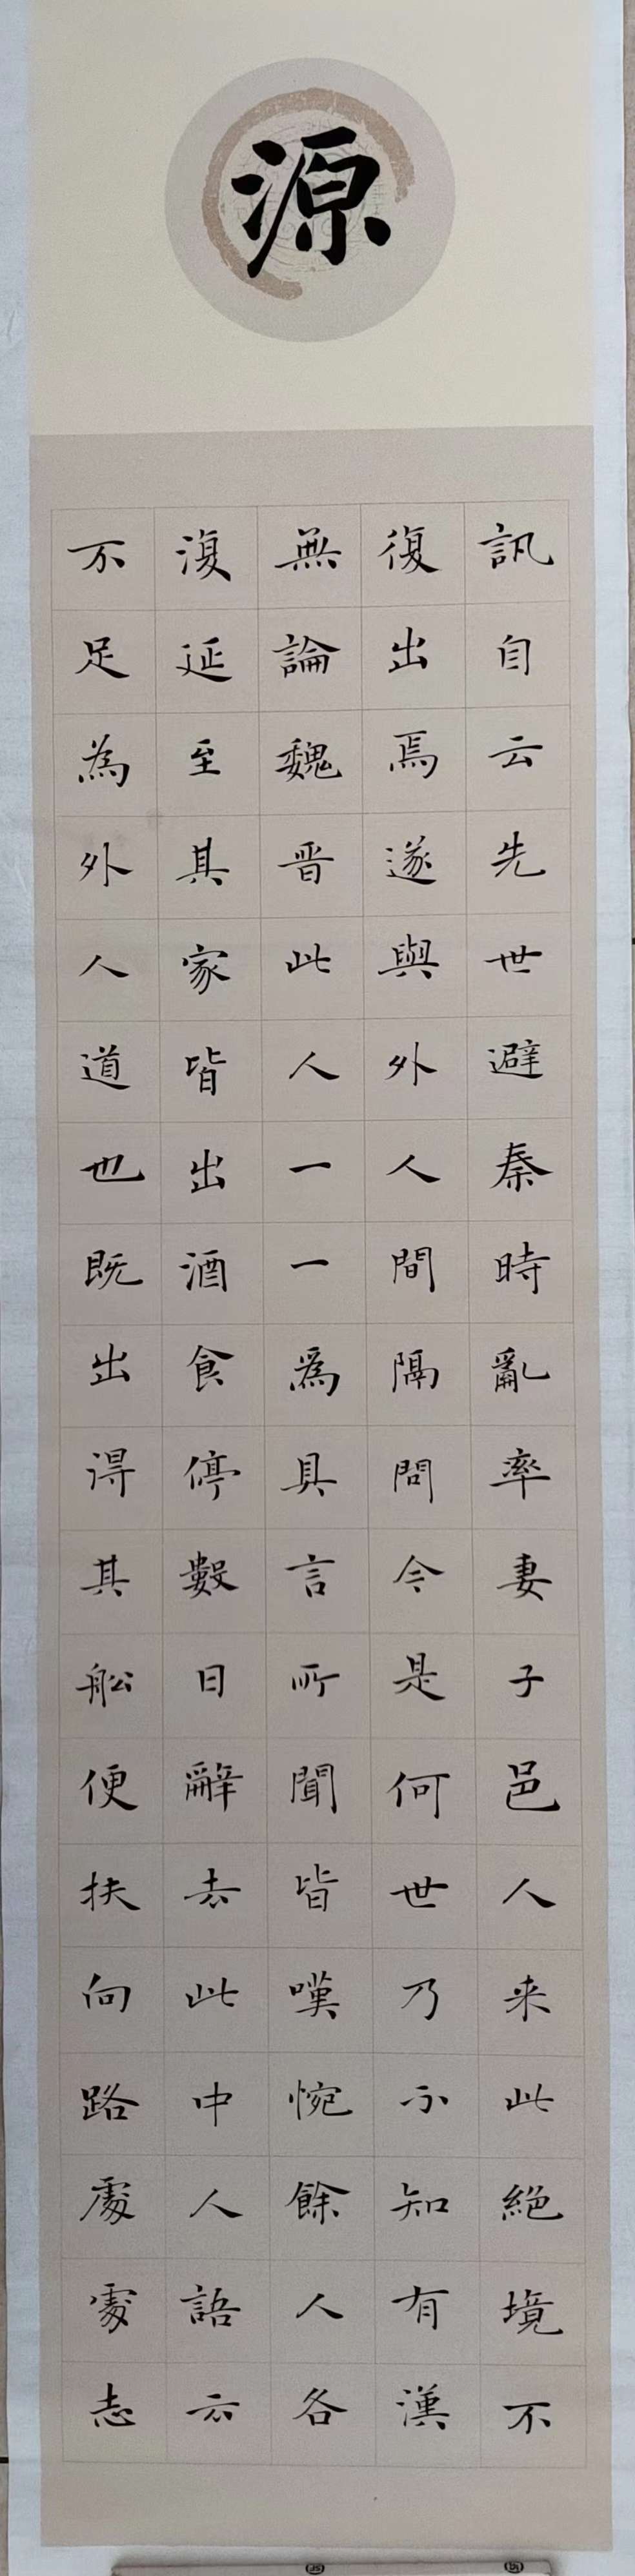 源
訊自云先世避秦時亂率妻子邑人来此絕境不
復出焉遂與外人間隔問今是何世乃不知有漢
無論魏晋此人一一爲具言所聞皆嘆惋餘人各
復延至其家皆出酒食停數日辭去此中人語云
不足為外人道也既出得其船便扶向路處處志